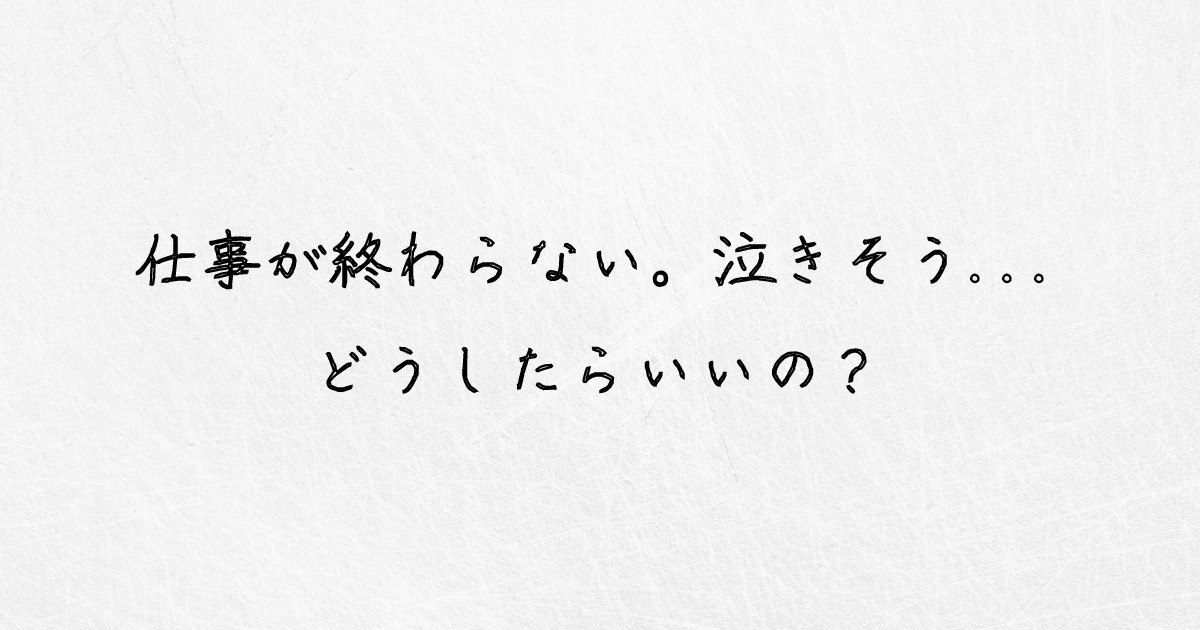 仕事が終わらない。泣きそう。。。
どうしたらいいの？